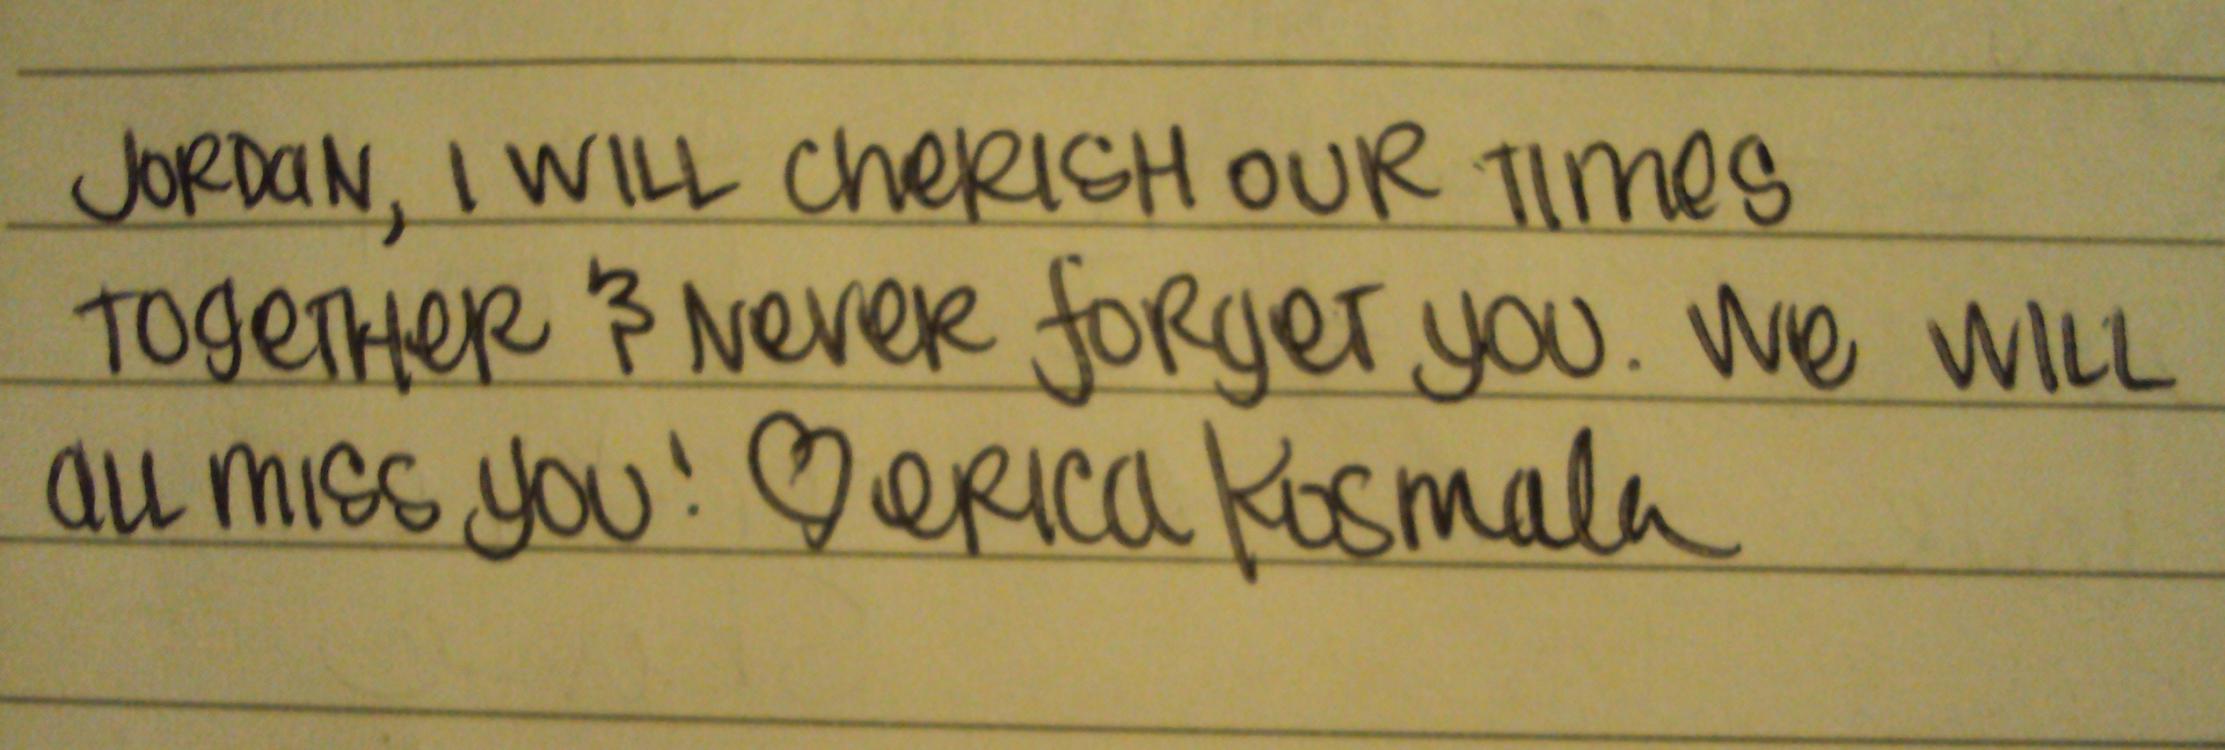 JORDaN, I WILL CheRISH OUR TImes
TOgeTHeR & NeveR forgeT you. We WILL
all miss you! ♡ eRICa Kosmala